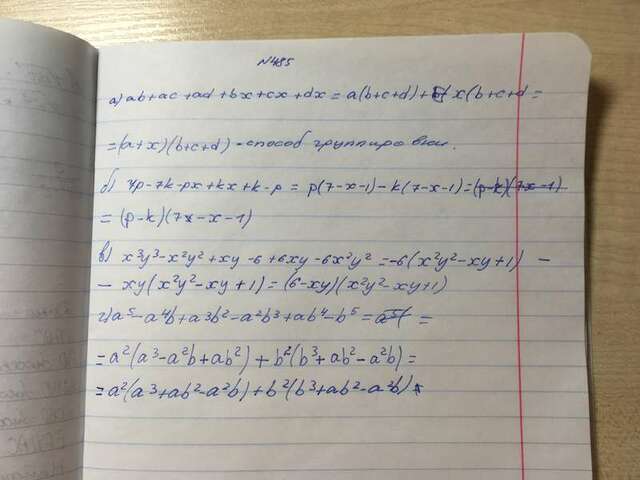 N485
а) ab + ac + ad + bx + cx + dx = a(b+c+d) + x(b+c+d =
= (a+x)(b+c+d) - способ группировки.
б) 7p - 7k - px + kx + k - p = p(7-x-1) - k(7-x-1) = (p-k)(7x-1)
= (p-k)(7x-x-1)
в) x³y³ - x²y² + xy - 6 + 6xy - 6x²y² = -6(x²y² - xy + 1) -
- xy(x²y² - xy + 1) = (6-xy)(x²y² - xy + 1)
г) a⁵ - a⁴b + a³b² - a²b³ + ab⁴ - b⁵ =
= a²(a³ - a²b + ab²) + b²(b³ + ab² - a²b) =
= a²(a³ + ab² - a²b) + b²(b³ + ab² - a²b)